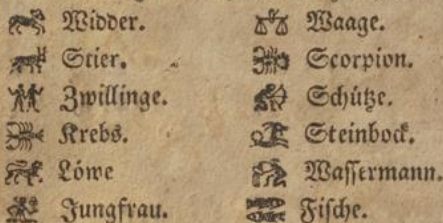 Widder.
Stier.
Zwillinge.
Krebs.
Löwe
Jungfrau.
Waage.
Scorpion.
Schütze.
Steinbock.
Wassermann.
Fische.